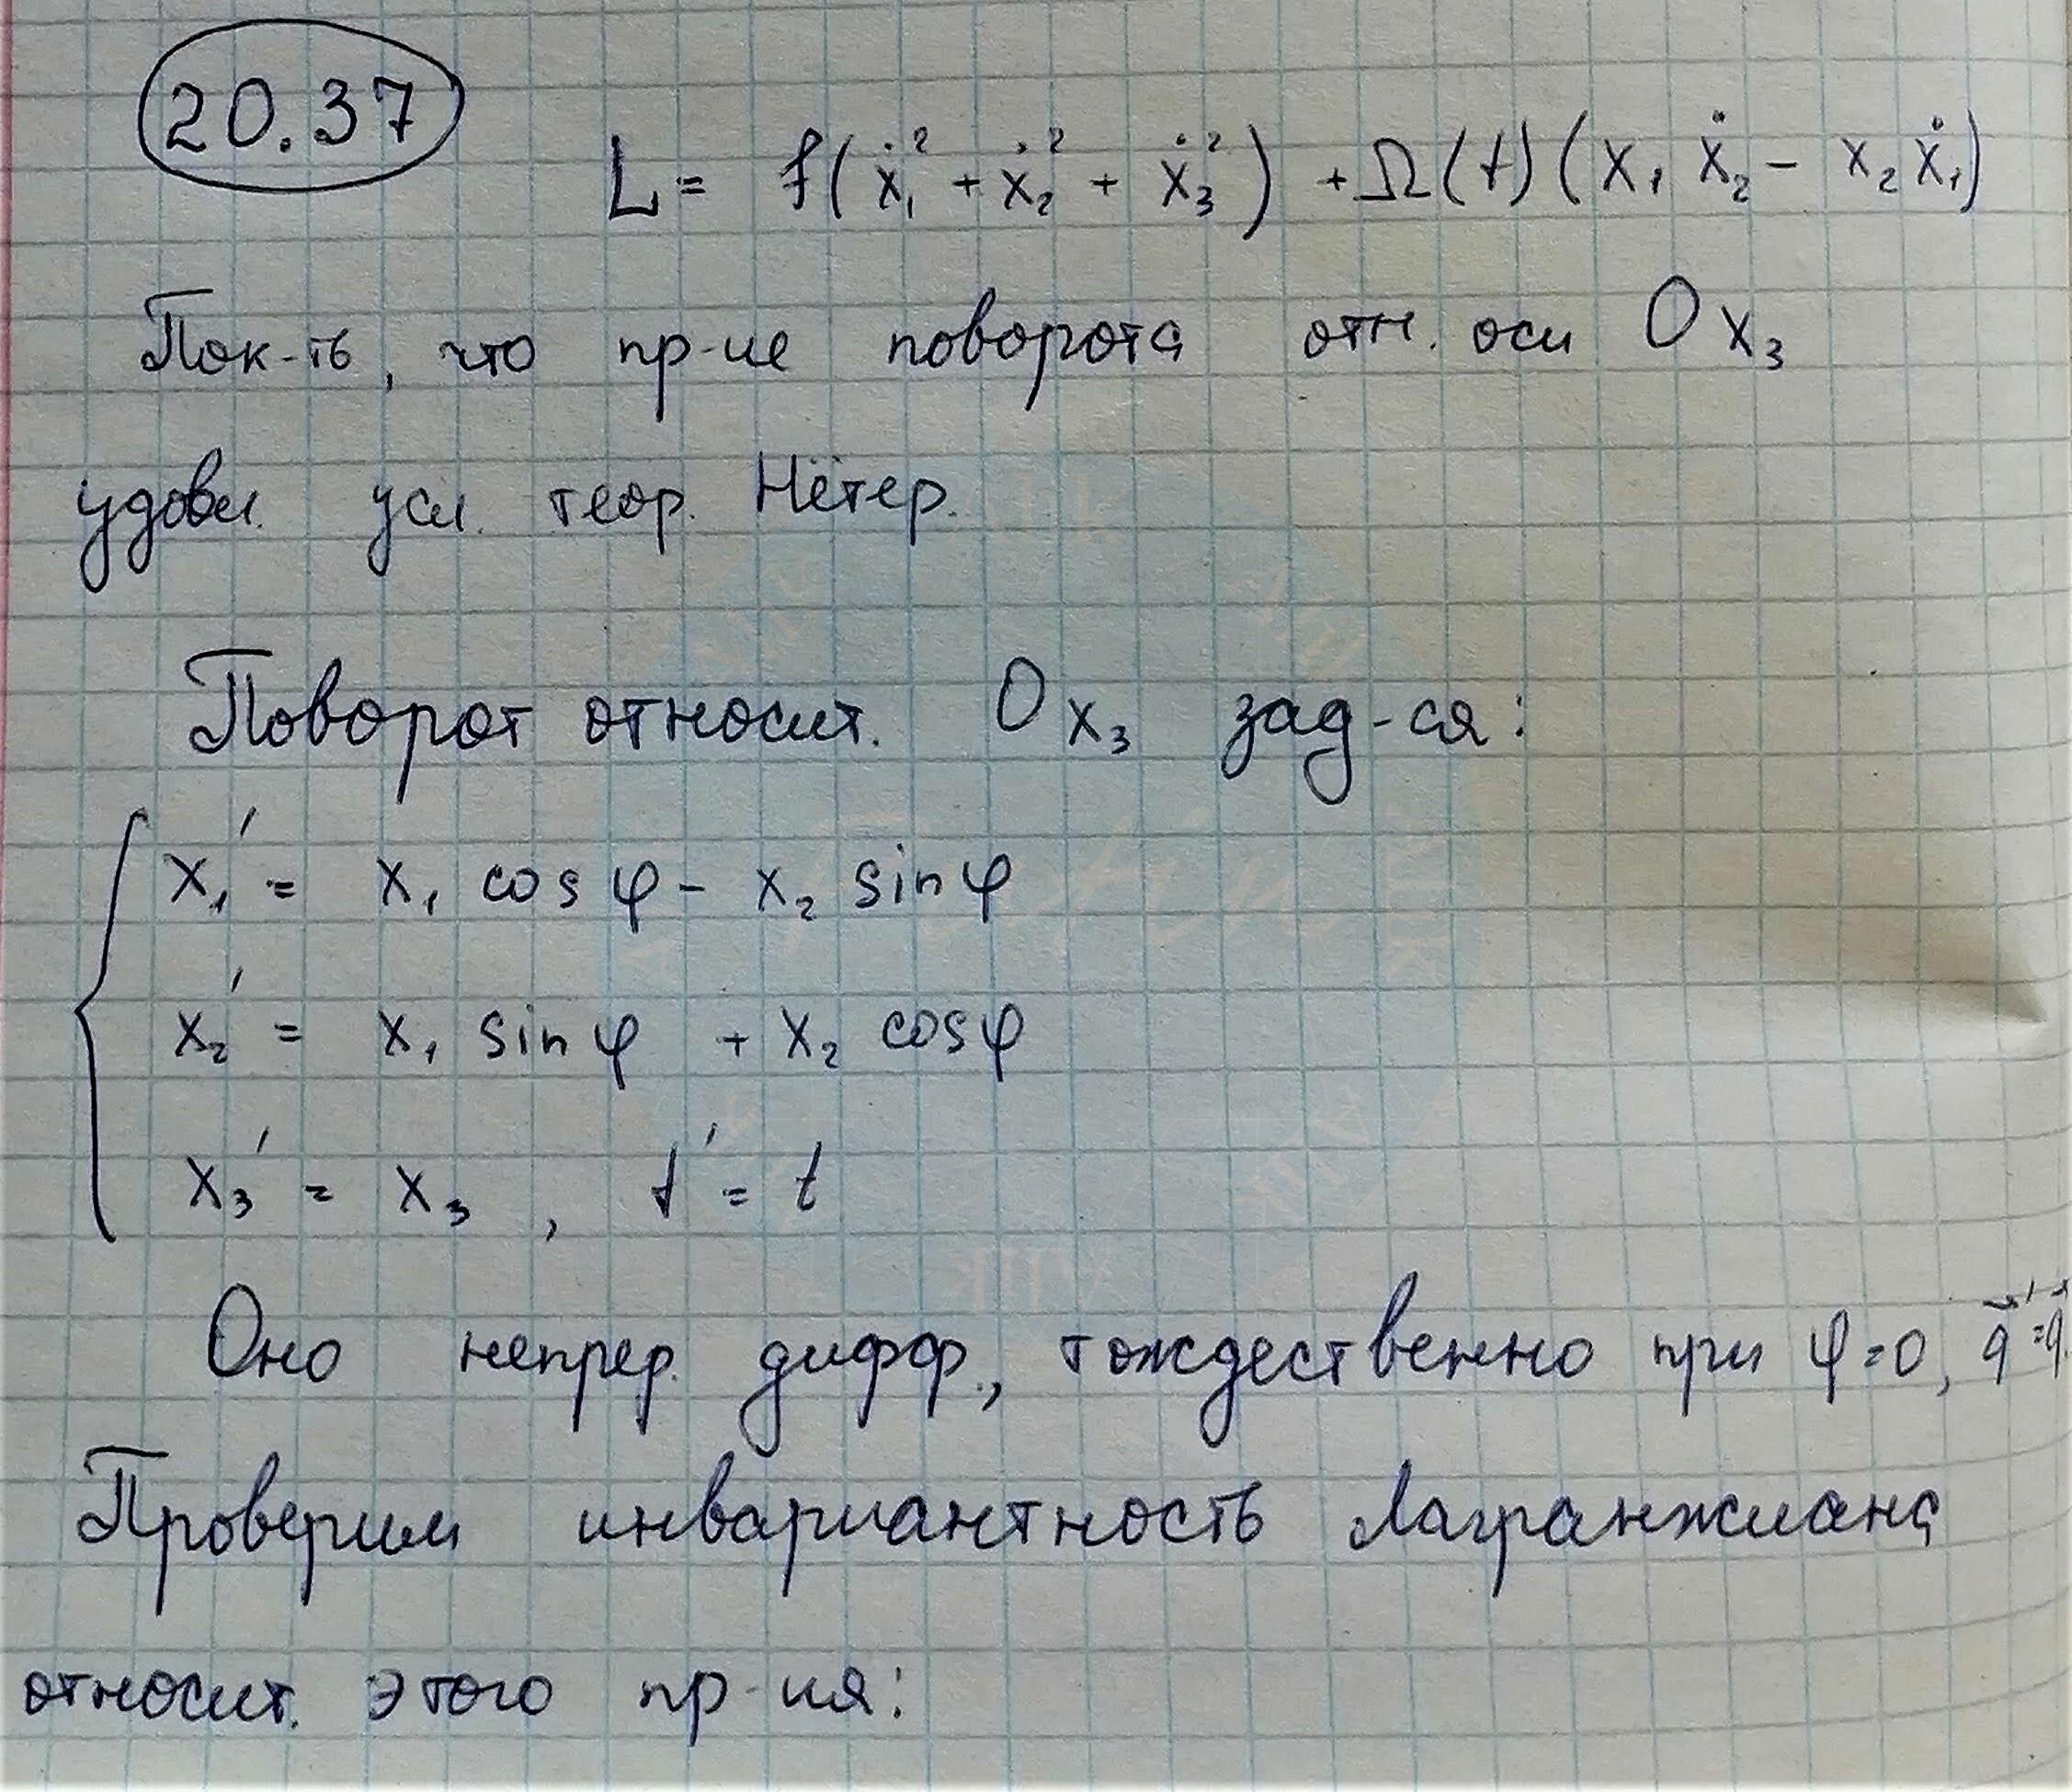 20.37
L = f(ẋ₁² + ẋ₂² + ẋ₃²) + Ω(t)(x₁ẋ₂ - x₂ẋ₁)
Пок-ть, что пр-ие поворота отн. оси Ox₃
удовл. усл. теор. Нётер.
Поворот относит. Ox₃ зад-ся:
x₁' = x₁ cos φ - x₂ sin φ
x₂' = x₁ sin φ + x₂ cos φ
x₃' = x₃, t' = t
Оно непрер. дифф., тождественно при φ=0, q⃗'=q⃗
Проверим инвариантность Лагранжиана
относит. этого пр-ия: